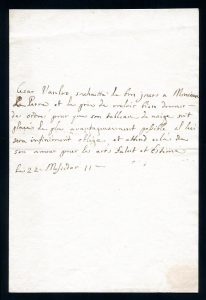 César Vanloo, souhaite le bon jours a Monsieur
Le                et le prie de vouloir bien donner
des ordres pour que son tableau de neige soit
placé le plus avantageusement possible, il lui
sera infiniment obligé, et attend cela de
son amour pour les arts Salut et Estime
ce 22 Messidor 11